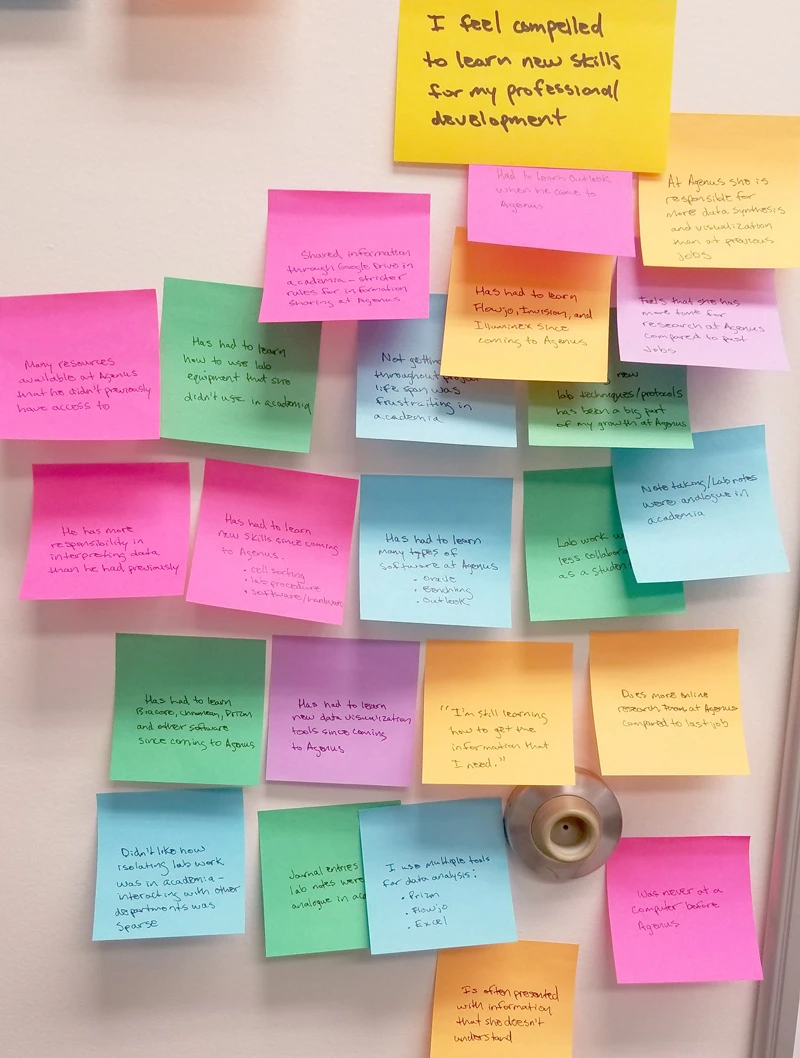 I feel compelled
to learn new skills
for my professional
development
Had to learn Outlook
when he came to
Agenus
At Agenus she is
responsible for
more data synthesis
and visualization
than at previous
jobs
Shared information
through Google Drive in
academia - stricter
rules for information
sharing at Agenus
Has had to learn
Flowjo, Invision, and
Illuminex since
coming to Agenus
Feels that she has
more time for
research at Agenus
compared to past
jobs
Many resources
available at Agenus
that he didn't previously
have access to
Has had to learn
how to use lab
equipment that she
didn't use in academia
Not getting
throughout project
life span was
frustraiting in
academia
new
lab techniques/protocols
has been a big part
of my growth at Agenus
He has more
responsibility in
interpreting data
than he had previously
Has had to learn
new skills since coming
to Agenus.
• cell sorting
• lab procedure
• software/hardware
Has had to learn
many types of
software at Agenus
• Benchling
• Outlook
Lab work
less
as a student
Note taking/Lab notes
were analogue in
academia
Has had to learn
Biacore, Prizm
and other software
since coming to Agenus
Has had to learn
new data visualization
tools since coming
to Agenus
"I'm still learning
how to get the
information that
I need."
Does more online
research at Agenus
compared to last job
Didn't like how
isolating lab work
was in academia -
interacting with other
departments was
sparse
Journal entries
lab notes were
analogue in
I use multiple tools
for data analysis:
• Prizm
• Flowjo
• Excel
Was never at a
computer before
Agenus
Is often presented
with information
that she doesn't
understand